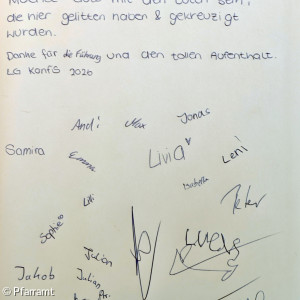 die hier gelitten haben & gekreuzigt
wurden.
Danke für die Führung und den tollen Aufenthalt.
LG Konfis 2020
Andi Max Jonas
Samira Emma Livia Leni
Lilli Isabella
Sophie Peter
Julian Lucas
Jakob Julian
© Pfarramt